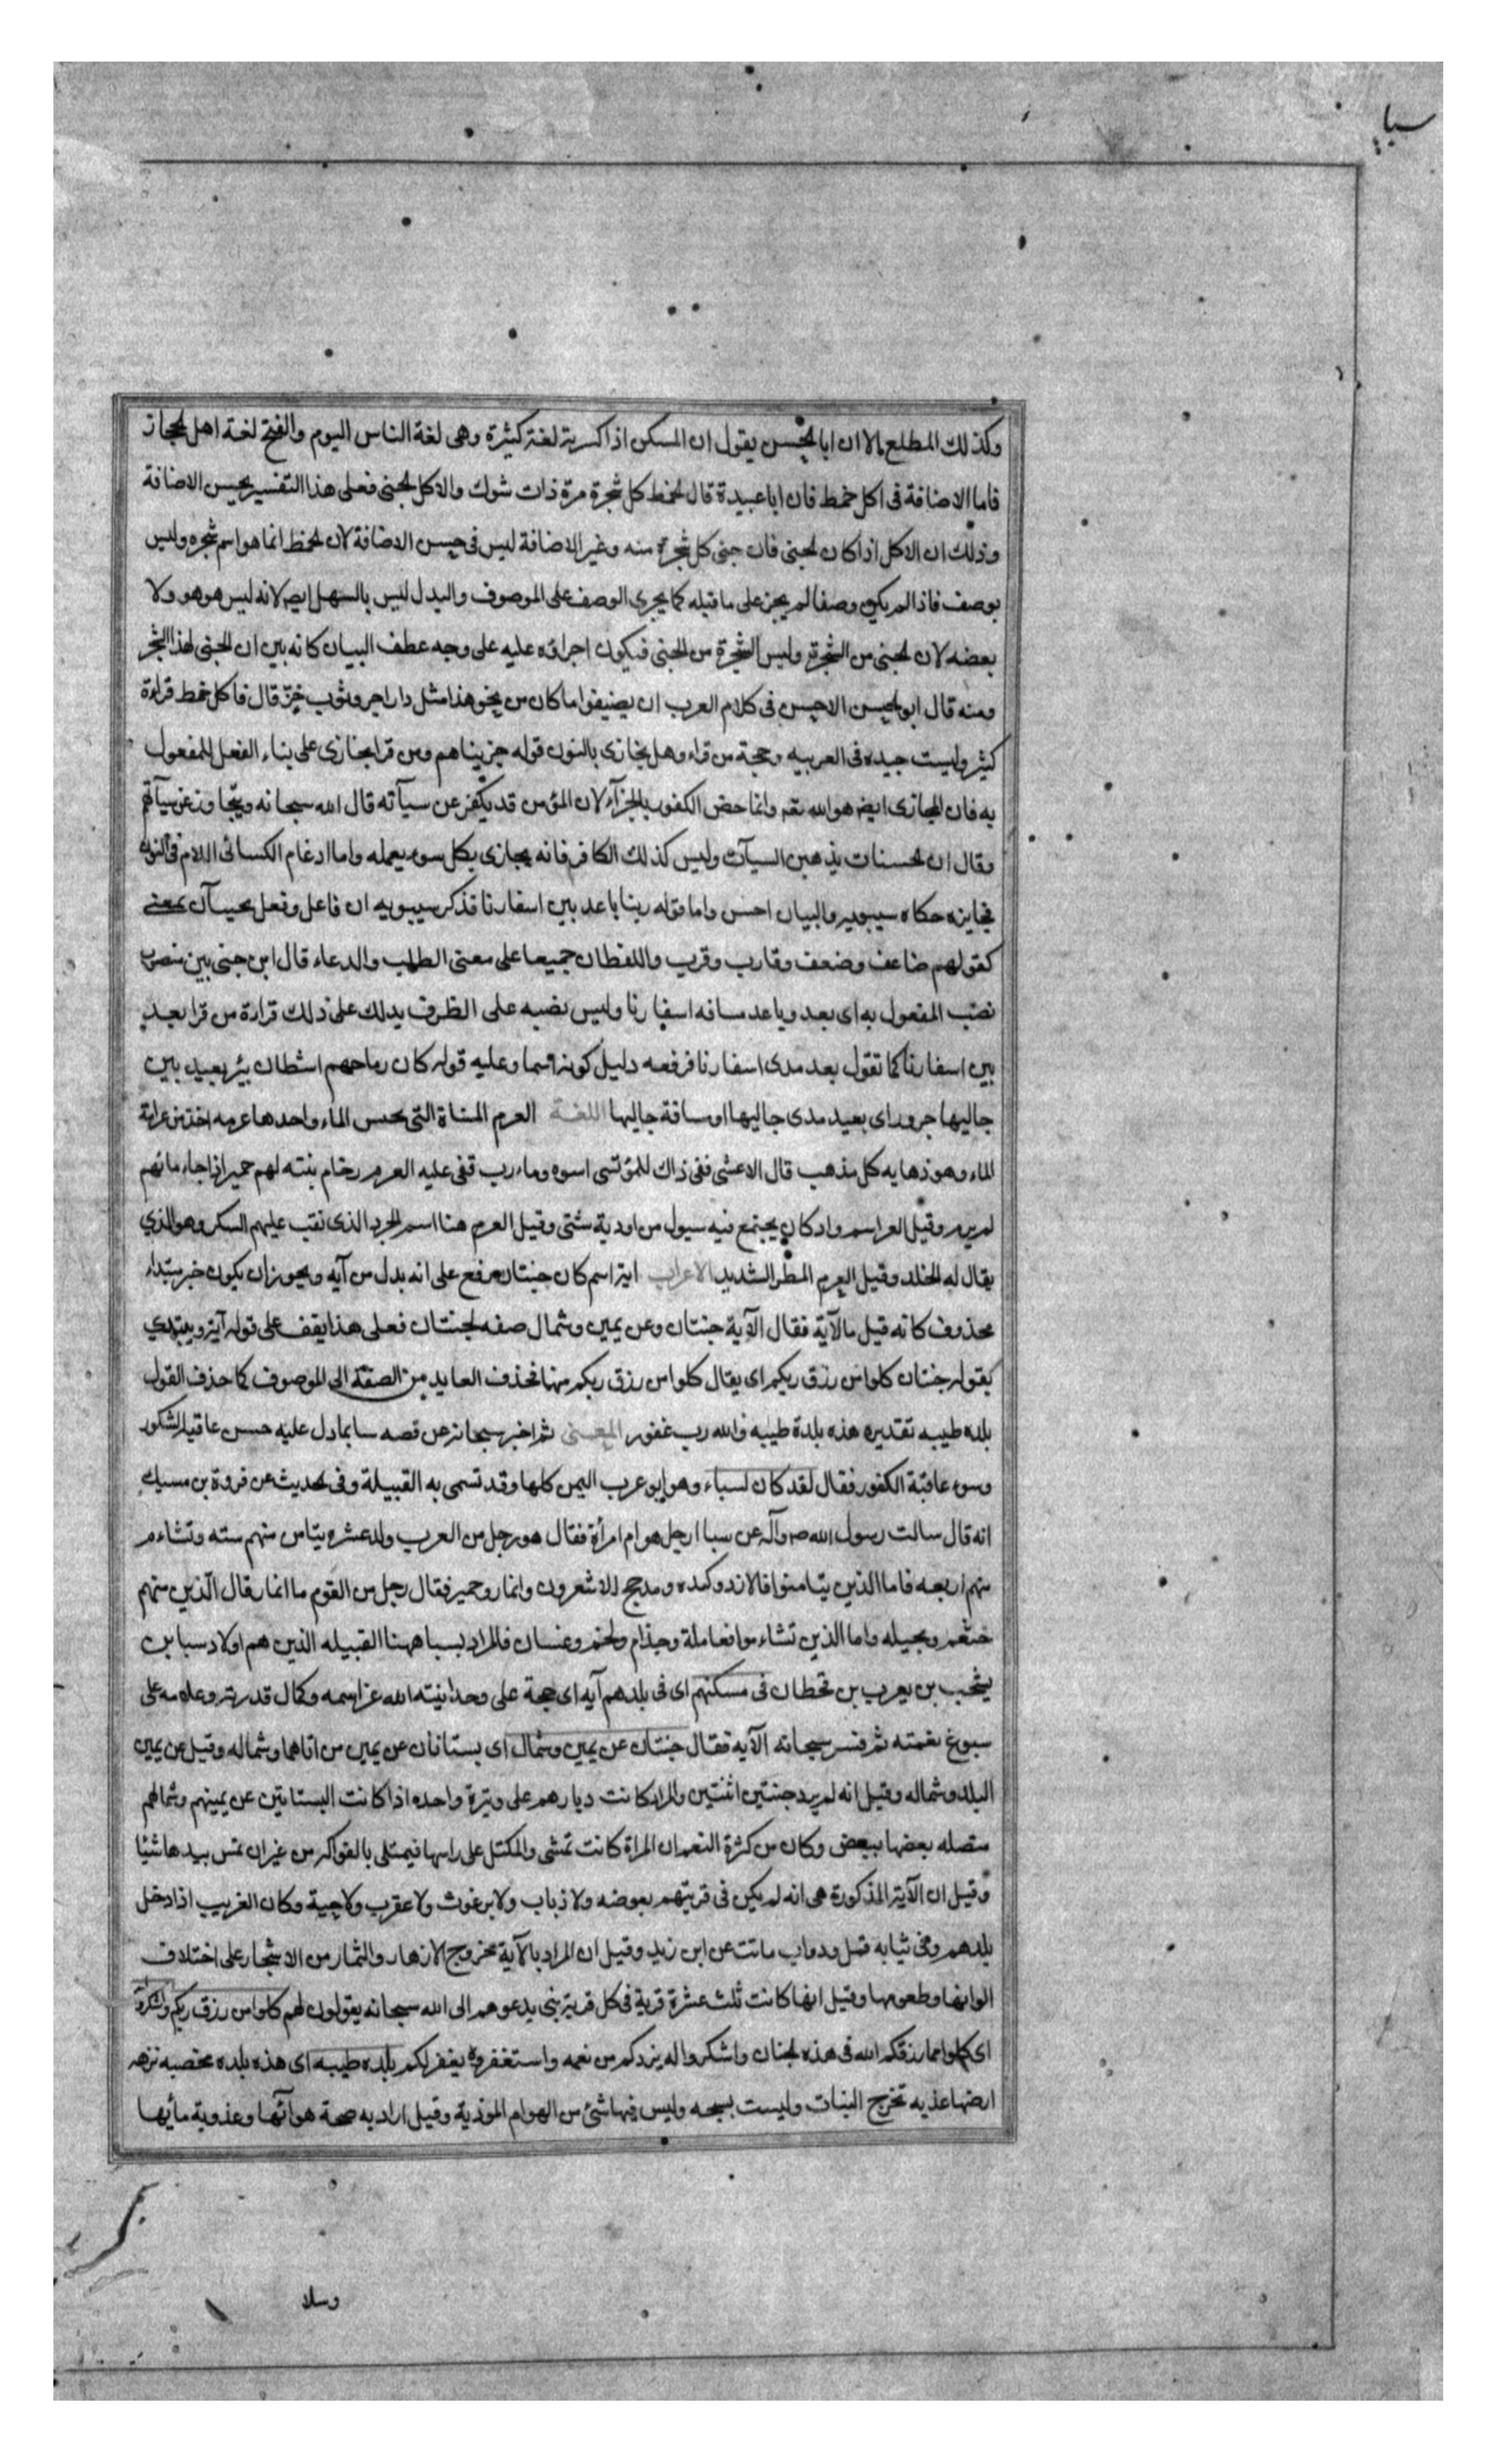 سبا
وكذلك المطلع الا ان ابا الحسن يقول ان المسكن اذا كسرته لغة كثيرة وهى لغة الناس اليوم والفتح لغة اهل الحجاز
فاما الاضافة فى اكل خمط فان ابا عبيدة قال الخمط كل شجرة مرة ذات شوك والاكل الجنى فعلى هذا التفسير يحسن الاضافة
وذلك ان الاكل اذا كان الجنى فان جنى كل شجرة منه وغير الاضافة ليس فى حسن الاضافة لان الخمط انما هو اسم شجره وليس
بوصف فاذا لم يكن وصفا لم يجز على ما قبله كما يجرى الوصف على الموصوف والبدل ليس بالسهل ايض لانه ليس هو هو ولا
بعضه لان الجنى من الشجرة وليس الشجرة من الجنى فيكون اجراؤه عليه على وجه عطف البيان كانه بين ان الجنى لهذا الشجر
ومنه قال ابو الحسن الاحسن فى كلام العرب ان يضيفوا ما كان من نحو هذا مثل دار اجر وثوب خز قال فاكل خمط قراءة
كثير وليست جيده فى العربيه وحجة من قراء وهل نجازى بالنون قوله جزيناهم ومن قرا يجازى على بناء الفعل للمفعول
به فان المجازى ايض هو الله تعه وانما خص الكفور بالجزآء لان المؤمن قد يكفر عن سيآته قال الله سبحانه ويتجاوز عن سيآتهم
وقال ان الحسنات يذهبن السيآت وليس كذلك الكافر فانه يجازى بكل سوء يعمله واما ادغام الكسائى اللام فى النون
فجايزه حكاه سيبويه والبيان احسن واما قوله ربنا باعد بين اسفارنا فذكر سيبويه ان فاعل وفعل يجيآن بمعنى
كقولهم ضاعف وضعف وقارب وقرب واللفظان جميعا على معنى الطلب والدعاء قال ابن جنى بين منصوب
نصب المفعول به اى بعد وباعد مسافه اسفارنا وليس نصبه على الظرف يدلك على ذلك قراءة من قرا بعد
بين اسفارنا كما تقول بعد مدى اسفارنا فرفعه دليل كونه اسما وعليه قوله كان رماحهم اشطان بئر بعيد بين
جاليها جرور اى بعيد مدى جاليها او مسافة جاليها اللغة العرم المسناة التى يحبس الماء واحدها عرمه اخذ من عرامة
الماء وهو ذهابه كل مذهب قال الاعشى ففى ذاك للمؤتسى اسوه ومارب قفى عليه العرم رخام بنته لهم حمير اذا جاء ماؤهم
لم يرم وقيل العرم اسم واد كان يجتمع فيه سيول من اودية شتى وقيل العرم هنا اسم الجرذ الذى نقب عليهم السكر وهو الذى
يقال له الخلد وقيل العرم المطر الشديد الاعراب اية اسم كان جنتان رفع على انه بدل من آيه ويجوز ان يكون خبر مبتداء
محذوف كانه قيل ما الآية فقال الآية جنتان وعن يمين وشمال صفه لجنتان فعلى هذا يقف على قوله آية ويبتدى
بقوله جنتان كلوا من رزق ربكم اى يقال كلوا من رزق ربكم منها فحذف العايد من الصفة الى الموصوف كما حذف القول
بلده طيبه تقديره هذه بلدة طيبه والله رب غفور المعنى ثم اخبر سبحانه عن قصه سبا بما دل عليه حسن عاقبة الشكور
وسوء عاقبة الكفور فقال لقد كان لسباء وهو ابو عرب اليمن كلها وقد تسمى به القبيلة وفى الحديث عن فروة بن مسيك
انه قال سالت رسول الله ص وآله عن سبا ارجل هو ام امرأة فقال هو رجل من العرب ولد عشره تيامن منهم سته وتشاءم
منهم اربعه فاما الذين تيامنوا فالازد وكنده ومذحج والاشعرون وانمار وحمير فقال رجل من القوم ما انمار قال الذين منهم
خثعم وبجيله واما الذين تشاءموا فعاملة وجذام ولخم وغسان فالمراد بسبا ههنا القبيله الذين هم اولاد سبا بن
يشجب بن يعرب بن قحطان فى مسكنهم اى فى بلدهم آيه اى حجة على وحدانيته الله عز اسمه وكمال قدرته وعلامه على
سبوغ نعمته ثم فسر سبحانه الآيه فقال جنتان عن يمين وشمال اى بستانان عن يمين من اتاهما وشماله وقيل عن يمين
البلد وشماله وقيل انه لم يرد جنتين اثنتين والمراد كانت ديارهم على وتيرة واحده اذا كانت البساتين عن يمينهم وشمالهم
متصله بعضها ببعض وكان من كثرة النعم ان المراة كانت تمشى والمكتل على راسها فيمتلى بالفواكه من غير ان تمس بيدها شيئا
وقيل ان الآية المذكورة هى انه لم يكن فى قريتهم بعوضه ولا ذباب ولا برغوث ولا عقرب ولا حية وكان الغريب اذا دخل
بلدهم وفى ثيابه قمل ودواب ماتت عن ابن زيد وقيل ان المراد بالآية خروج الازهار والثمار من الاشجار على اختلاف
الوانها وطعومها وقيل انها كانت ثلث عشرة قرية فى كل قرية نبى يدعوهم الى الله سبحانه يقولون لهم كلوا من رزق ربكم واشكروا
اى كلوا مما رزقكم الله فى هذه الجنان واشكروا له يزدكم من نعمه واستغفروه يغفر لكم بلده طيبه اى هذه بلده مخصبه نزهه
ارضها عذبه تخرج النبات وليست بسبخه وليس فيها شئ من الهوام الموذية وقيل اراد به صحة هوآئها وعذوبة مائها
وسلا